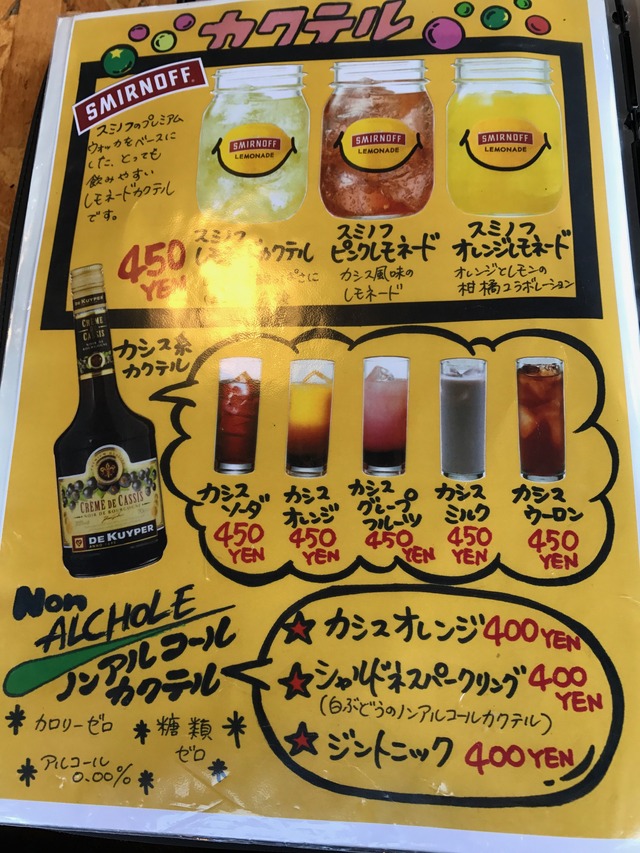 カクテル
SMIRNOFF
スミノフのプレミアム
ウォッカをベースに
した、とっても
飲みやすい
レモネードカクテル
です。
SMIRNOFF
LEMONADE
SMIRNOFF
LEMONADE
SMIRNOFF
LEMONADE
450
YEN
スミノフ
カクテル
スミノフ
ピンクレモネード
カシス風味の
レモネード
スミノフ
オレンジレモネード
オレンジとレモンの
柑橘コラボレーション
DE KUYPER
CRÈME DE
CASSIS
CRÈME DE CASSIS
DE KUYPER
カシス系
カクテル
カシス
ソーダ
450
YEN
カシス
オレンジ
450
YEN
カシス
グレープ
フルーツ
450
YEN
カシス
ミルク
450
YEN
カシス
ウーロン
450
YEN
Non
ALCHOLE
ノンアルコール
カクテル
カロリーゼロ
糖類
ゼロ
アルコール
0.00%
カシスオレンジ 400 YEN
シャルドネスパークリング 400
YEN
(白ぶどうのノンアルコールカクテル)
ジントニック 400 YEN